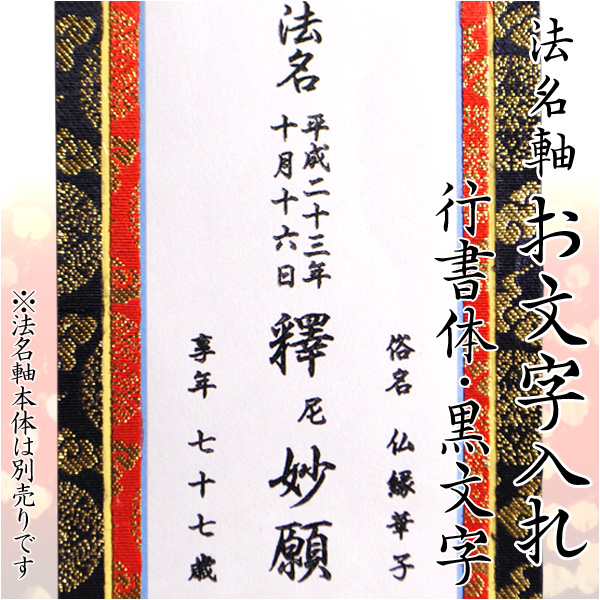 法名軸
お文字入れ
行書体・黒文字
俗名 仏縁華子
法名
平成二十三年
十月十六日
釋尼妙願
享年 七十七歳
※法名軸本体は別売りです